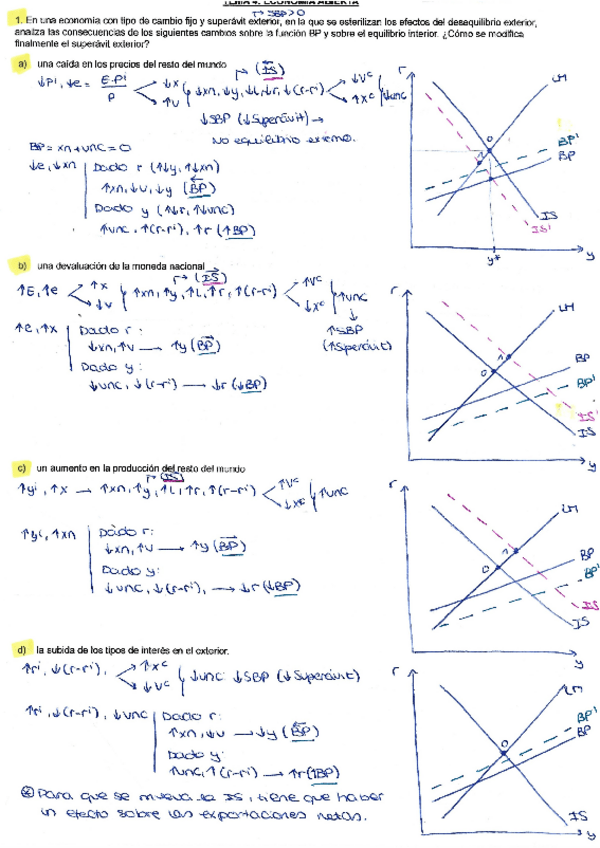 TEMA 4: ECONOMIA ABIERTA
↱ SBP>0
1. En una economía con tipo de cambio fijo y superávit exterior, en la que se esterilizan los efectos del desequilibrio exterior,
analiza las consecuencias de los siguientes cambios sobre la función BP y sobre el equilibrio interior. ¿Cómo se modifica
finalmente el superávit exterior?
a) una caída en los precios del resto del mundo
↓Pi, ↓e = E·Pi / P
↓X
↑V
↓xn, ↓y, ↓L, ↓r, ↓(r-ri)
(IS)
↓Vc
↑Xc
↓unc
↓SBP (↓Superávit) →
No equilibrio externo.
BP = xn + unc = 0
↓e, ↓xn
Dado r (↑↓y, ↑↓xn)
↑xn, ↓v, ↓y (BP)
Dado y (↑↓r, ↑↓unc)
↑unc, ↑(r-ri), ↑r (↑BP)
r
LM
0
1
BP'
BP
IS
IS'
y*
y
b) una devaluación de la moneda nacional
↑E, ↑e
↑x
↓v
↑xn, ↑y, ↑L, ↑r, ↑(r-ri)
(IS)
↑Vc
↓xc
↑unc
↓
↑SBP
(↑Superávit)
↑e, ↑x
Dado r:
↓xn, ↑v → ↑y (BP)
Dado y:
↓unc, ↓(r-ri) → ↓r (↓BP)
r
LM
0
1
BP
BP'
IS'
IS
y
c) un aumento en la producción del resto del mundo
↑yi, ↑x → ↑xn, ↑y, ↑L, ↑r, ↑(r-ri)
(IS)
↑Vc
↓xc
↑unc
↑yi, ↑xn
Dado r:
↓xn, ↑v → ↑y (BP)
Dado y:
↓unc, ↓(r-ri), → ↓r (↓BP)
r
LM
0
1
BP
BP'
IS'
IS
y
d) la subida de los tipos de interés en el exterior.
↑ri, ↓(r-ri),
↑xc
↓Vc
↓unc: ↓SBP (↓Superávit)
↑ri, ↓(r-ri), ↓unc
Dado r:
↑xn, ↓v → ↓y (BP)
Dado y:
↑unc, ↑(r-ri) → ↑r (↑BP)
⊛ Para que se mueva la IS, tiene que haber
un efecto sobre las exportaciones netas.
r
LM
0
BP'
BP
IS
y